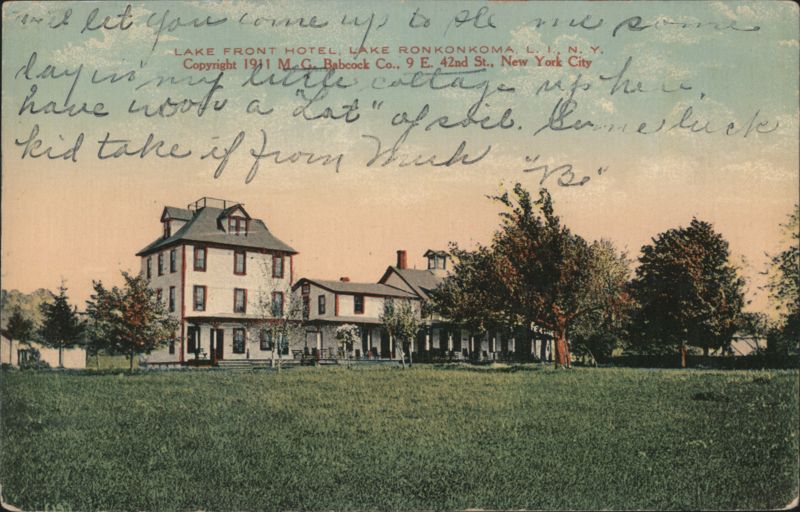 will let you come up to see me some
LAKE FRONT HOTEL, LAKE RONKONKOMA, L. I., N. Y.
Copyright 1911 M. G. Babcock Co., 9 E. 42nd St., New York City
day in my little cottage up here.
have now a "Lot" of soil. Some luck
kid take it from Much "Bo"